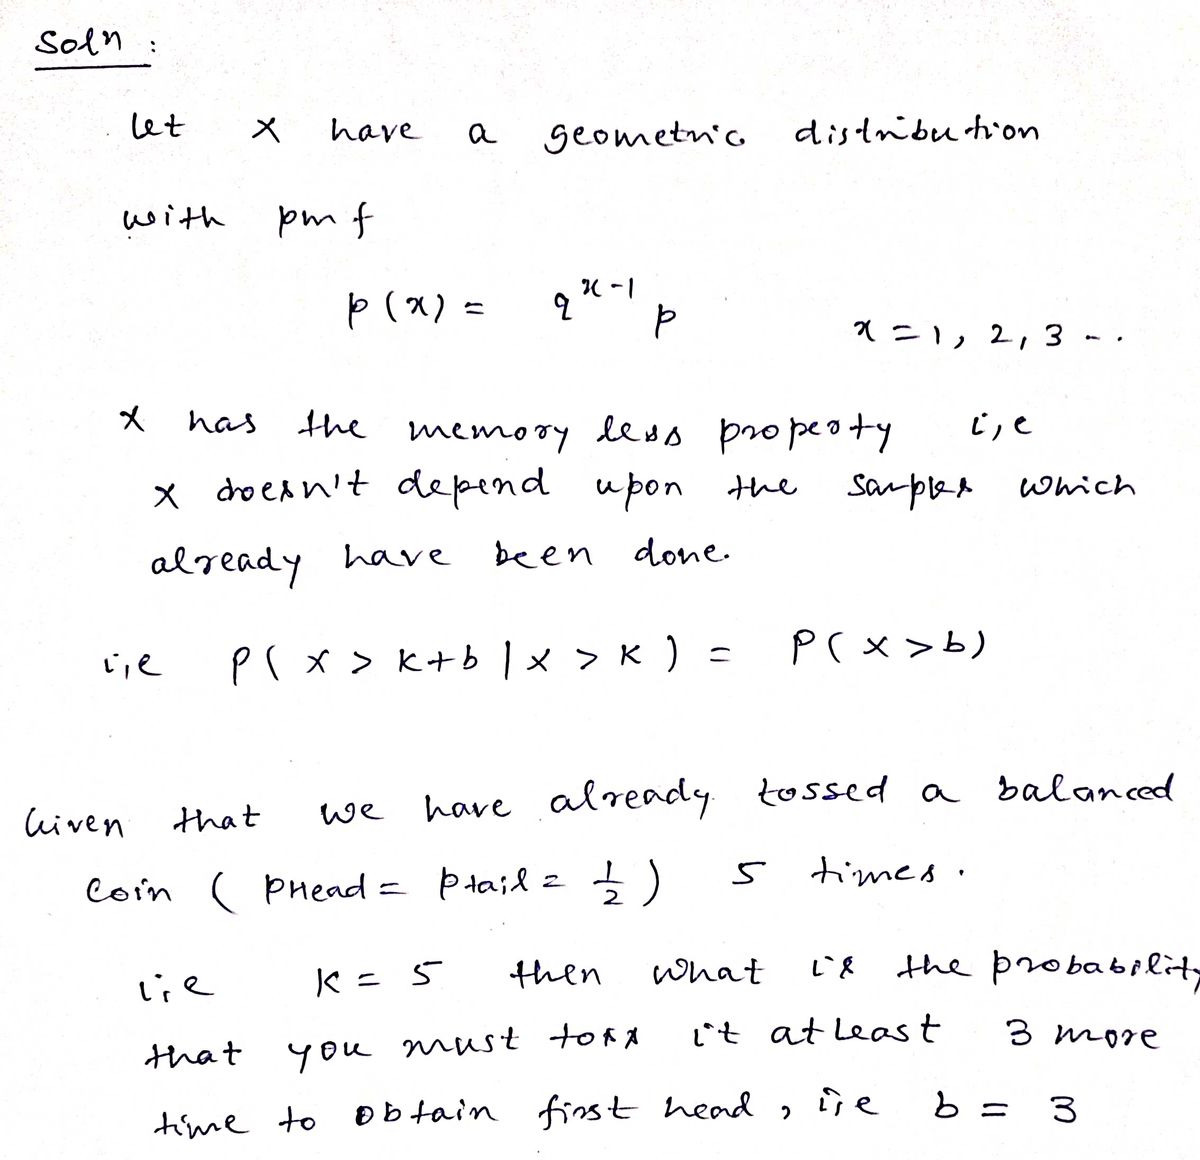 Soln :
let x have a geometric distribution
with pmf
p(x) = q^{x-1} p x = 1, 2, 3 - - .
x has the memory less property i,e
x doesn't depend upon the samples which
already have been done.
i,e P( x > k+b | x > k ) = P( x > b)
Given that we have already tossed a balanced
Coin ( PHead = Ptail = 1/2 ) 5 times .
i,e k = 5 then what is the probability
that you must toss it atleast 3 more
time to obtain first head , i,e b = 3